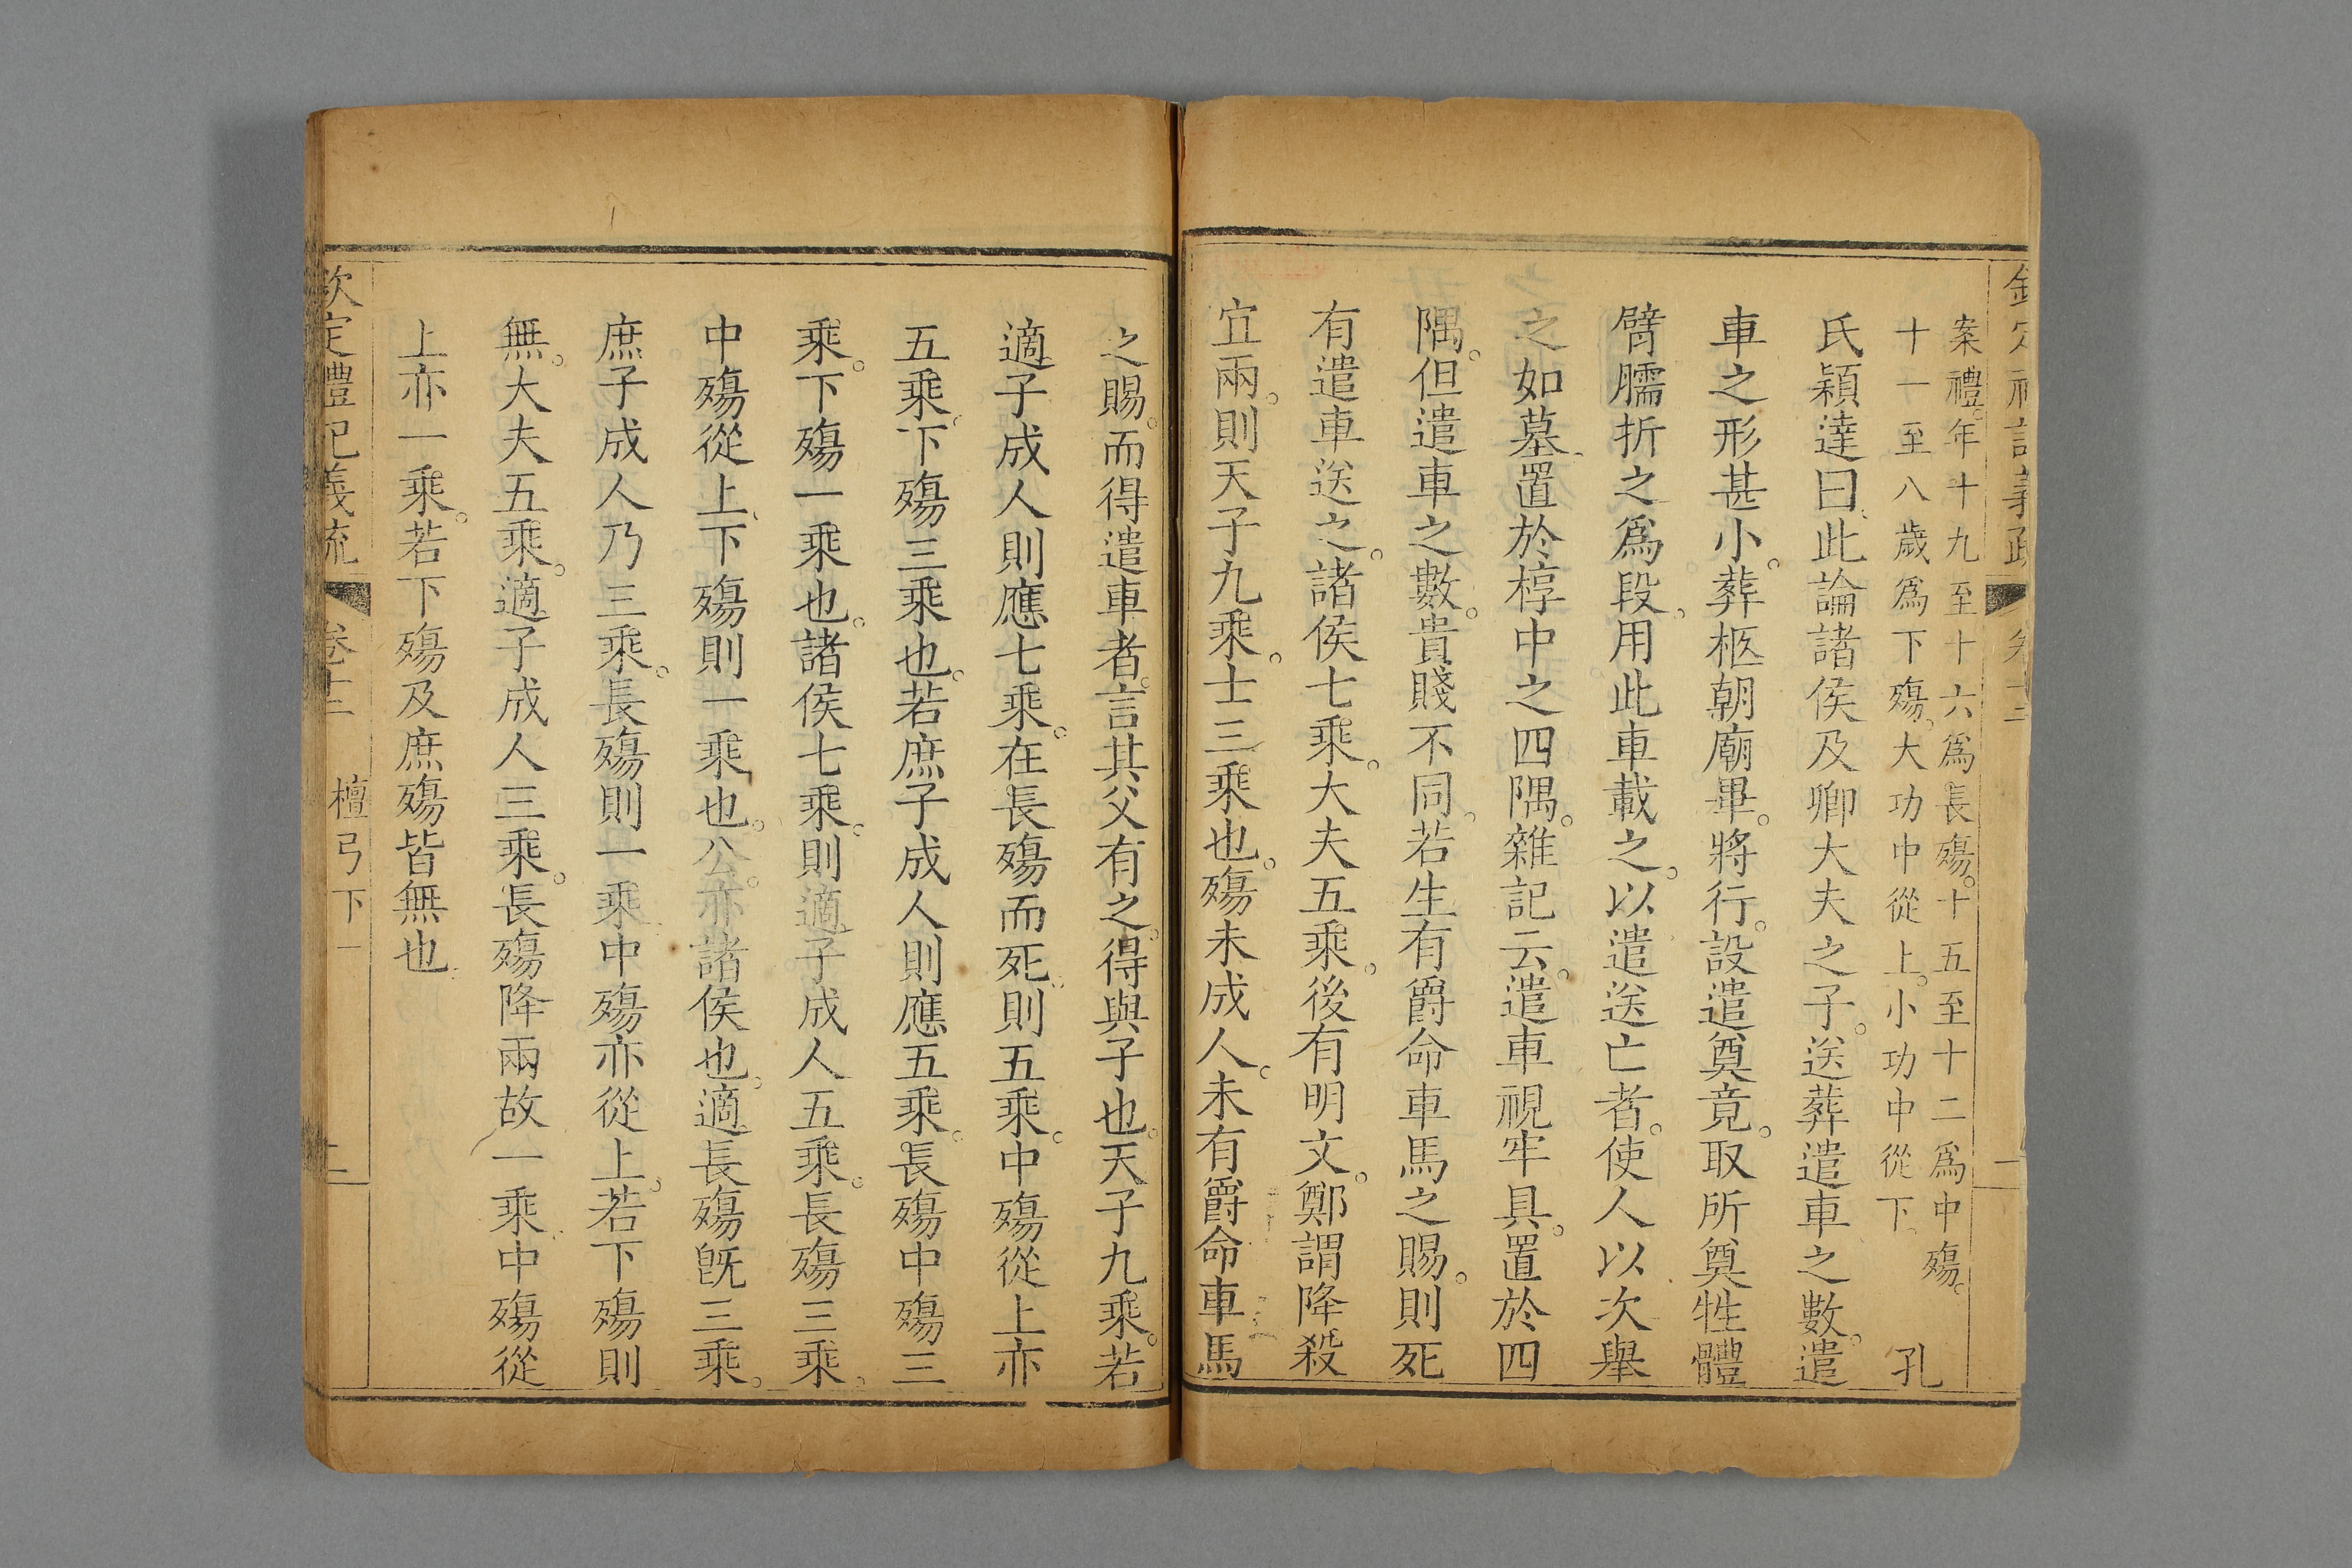 案禮。年十九至十六爲長殤。十五至十二爲中殤。
十一至八歲爲下殤。大功中從上。小功中從下。
孔
氏穎達曰、此論諸侯及卿大夫之子。送葬遣車之數。遣
車之形甚小。葬柩朝廟畢。將行。設遣奠竟。取所奠牲體
臂臑折之爲段、用此車載之。以遣送亡者。使人以次舉
之如墓、置於椁中之四隅。雜記云。遣車視牢具。置於四
隅。但遣車之數。貴賤不同。若生有爵命車馬之賜。則死
有遣車送之。諸侯七乘。大夫五乘。後有明文。鄭謂降殺
宜兩。則天子九乘。士三乘也。殤未成人。未有爵命車馬
之賜。而得遣車者。言其父有之。得與子也。天子九乘。若
適子成人則應七乘。在長殤而死、則五乘。中殤從上亦
五乘、下殤三乘也。若庶子成人則應五乘。長殤中殤三
乘。下殤一乘也。諸侯七乘。則適子成人五乘。長殤三乘、
中殤從上、下殤則一乘也。公。亦諸侯也。適長殤旣三乘。
庶子成人乃三乘。長殤則一乘、中殤亦從上。若下殤則
無。大夫五乘。適子成人三乘。長殤降兩故一乘、中殤從
上亦一乘。若下殤及庶殤皆無也。
欽定禮記義疏 卷十三 檀弓下一 二